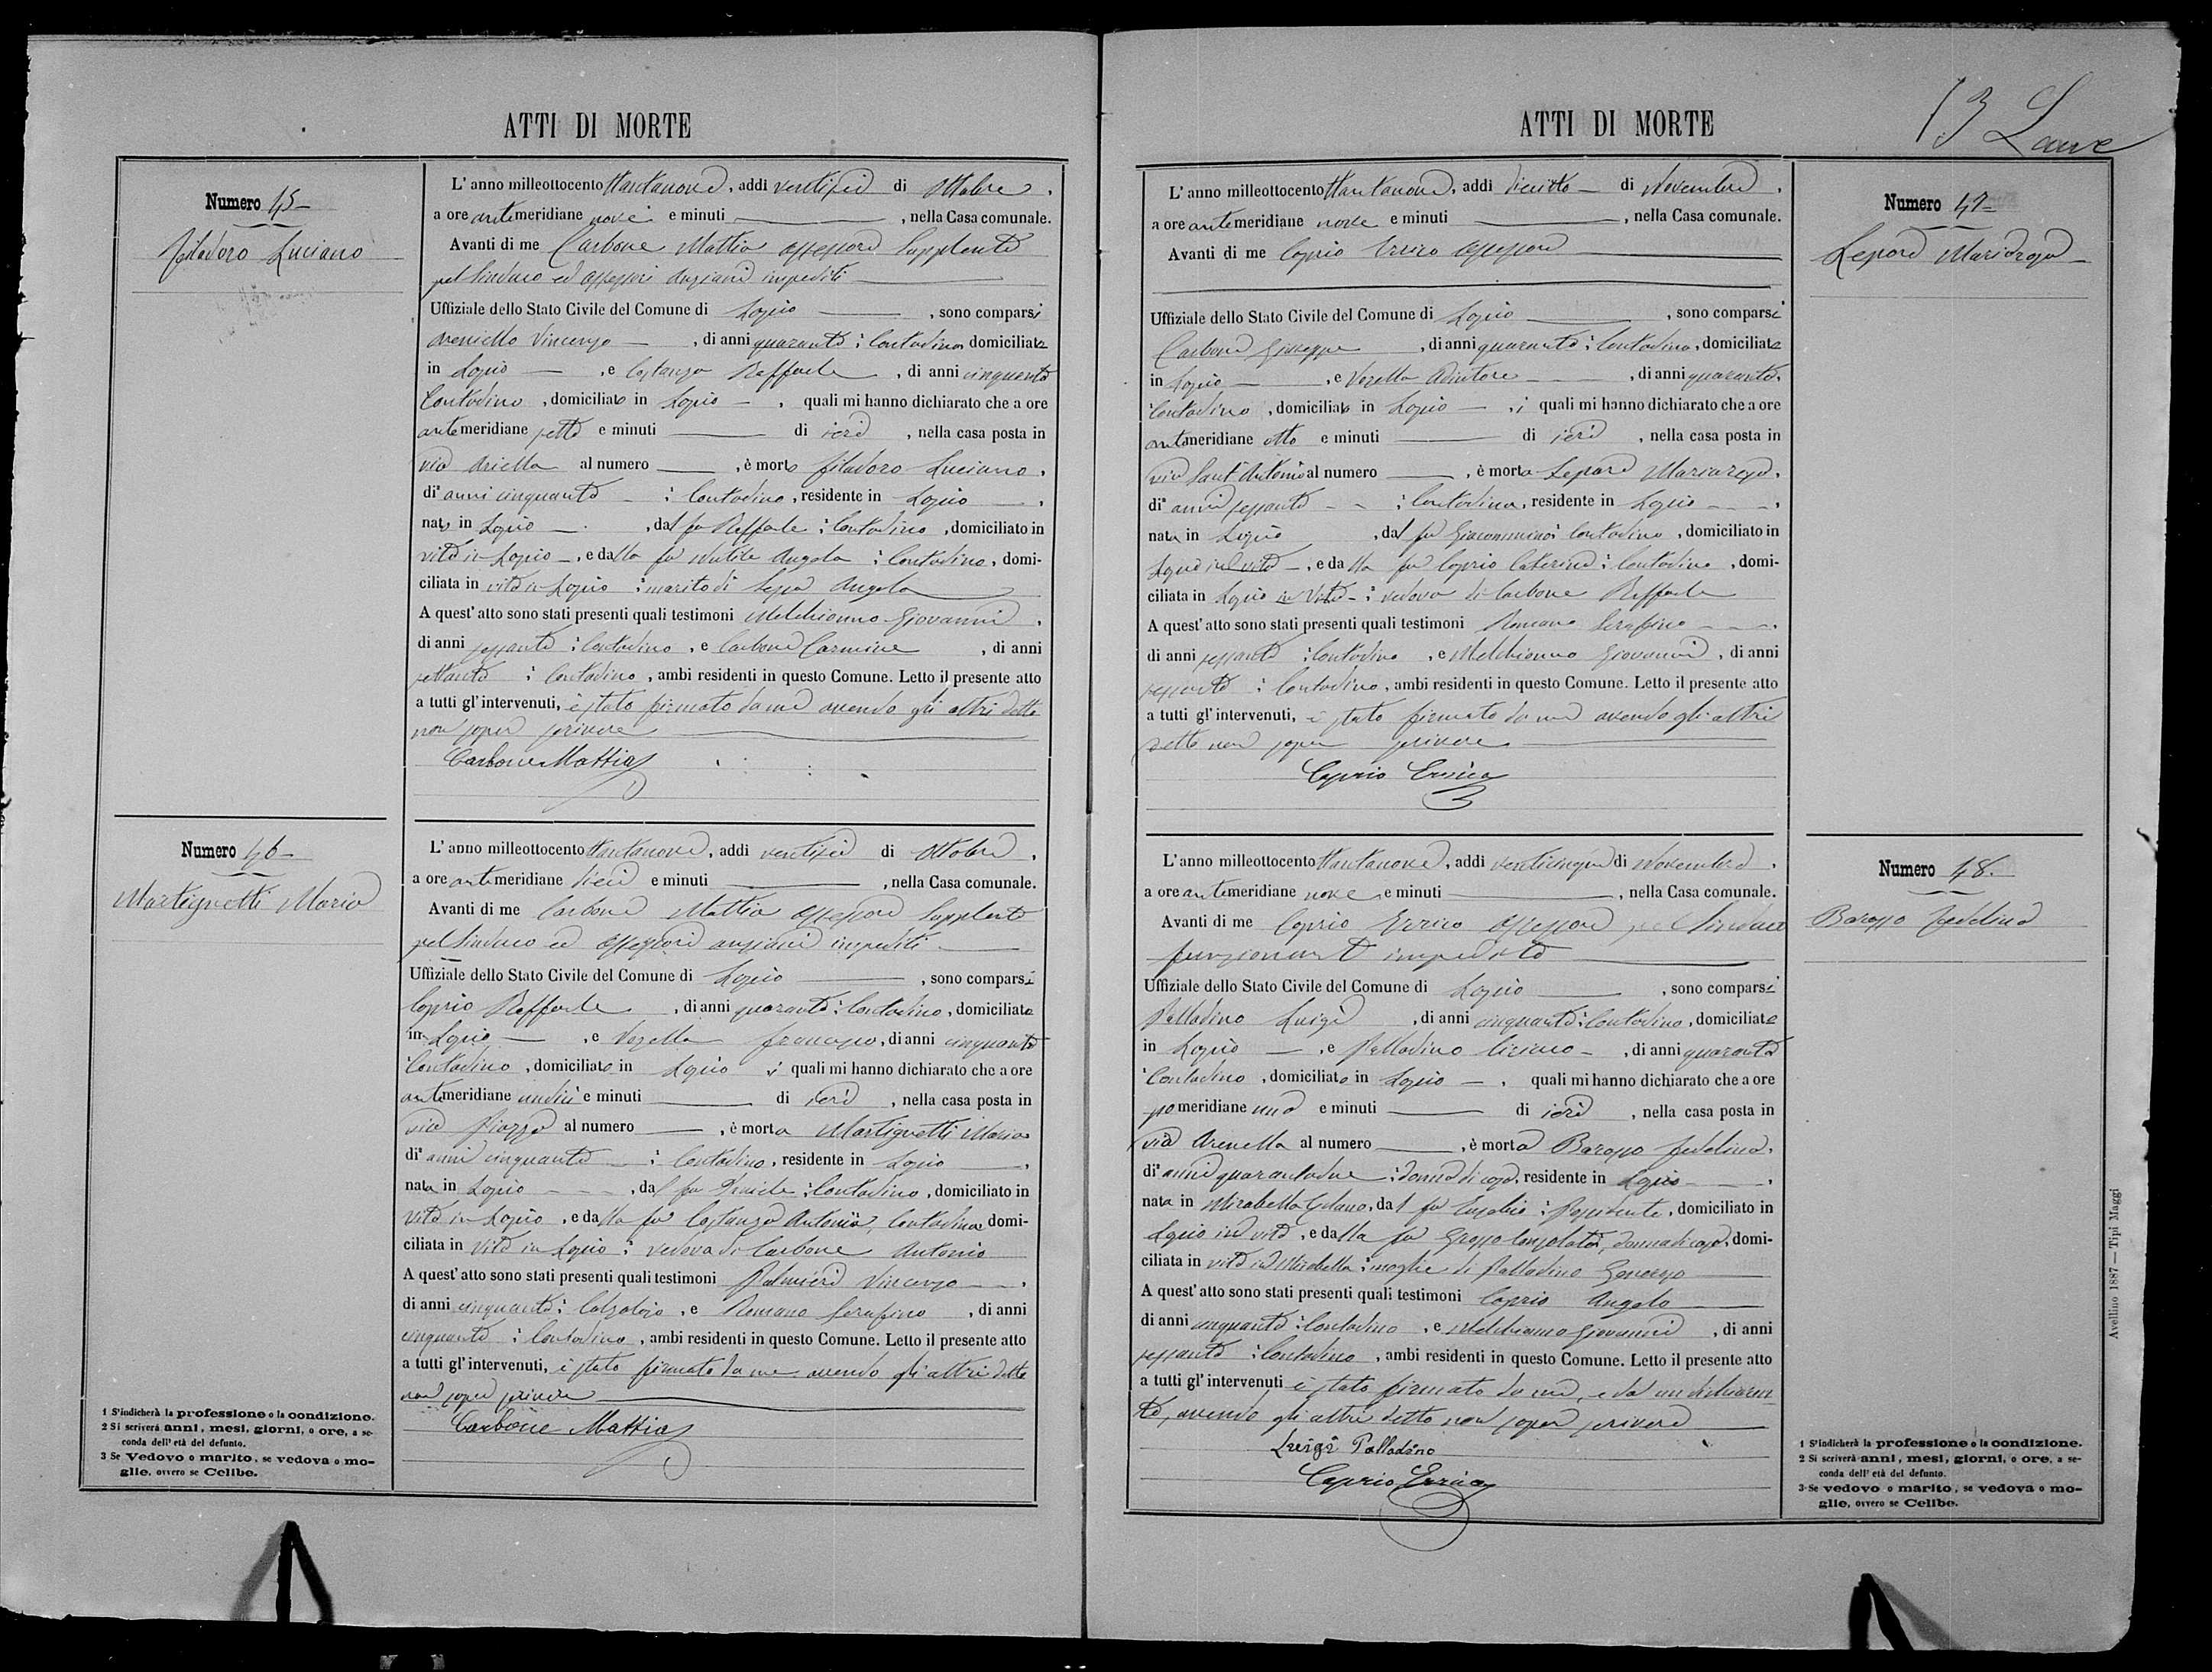 ATTI DI MORTE
Numero 45
Filadoro Luciano
L'anno milleottocento ottantanove, addì ventisei di Ottobre,
a ore antimeridiane nove e minuti ———, nella Casa comunale.
Avanti di me Carbone Mattia Assessore Supplente
pel Sindaco ed assessori anziani impediti
Uffiziale dello Stato Civile del Comune di Lapio ———, sono comparsi
Vincenzo —, di anni quaranta; Contadino, domiciliato
in Lapio —, e Costanza Raffaele, di anni cinquanta
Contadino, domiciliato in Lapio —, quali mi hanno dichiarato che a ore
antimeridiane sette e minuti ——— di ieri, nella casa posta in
via Ariella al numero ———, è morto Filadoro Luciano,
di anni cinquanta —; Contadino, residente in Lapio —,
nato in Lapio —, dal fu Raffaele; Contadino, domiciliato in
vita in Lapio —, e dalla fu Angela; Contadina, domi-
ciliata in vita in Lapio; marito di Angela
A quest'atto sono stati presenti quali testimoni Melchionno Giovanni,
di anni sessanta; Contadino, e Carbone Carmine, di anni
settanta; Contadino, ambi residenti in questo Comune. Letto il presente atto
a tutti gl'intervenuti, è stato firmato da me avendo gli altri detto
non saper scrivere
Carbone Mattia
Numero 46
Martignetti Maria
L'anno milleottocento ottantanove, addì ventisei di Ottobre,
a ore antimeridiane dieci e minuti ———, nella Casa comunale.
Avanti di me Carbone Mattia Assessore Supplente
pel Sindaco ed Assessori anziani impediti
Uffiziale dello Stato Civile del Comune di Lapio ———, sono comparsi
Caprio Raffaele, di anni quaranta; Contadino, domiciliato
in Lapio —, e Vozella Francesco, di anni cinquanta
Contadino, domiciliato in Lapio i quali mi hanno dichiarato che a ore
antimeridiane undici e minuti ——— di ieri, nella casa posta in
via Piazza al numero ———, è morta Martignetti Maria
di anni cinquanta —; Contadina, residente in Lapio —,
nata in Lapio —, dal fu; Contadino, domiciliato in
vita in Lapio, e dalla fu Costanza Antonia, Contadina domi-
ciliata in vita in Lapio; vedova di Carbone Antonio
A quest'atto sono stati presenti quali testimoni Palmieri Vincenzo —,
di anni cinquanta; Calzolajo, e Romano Serafino, di anni
cinquanta; Contadino, ambi residenti in questo Comune. Letto il presente atto
a tutti gl'intervenuti, è stato firmato da me avendo gli altri detto
non saper scrivere
Carbone Mattia
1 S'indicherà la professione o la condizione.
2 Si scriverà anni, mesi, giorni, o ore, a se-
conda dell'età del defunto.
3 Se Vedovo o marito, se vedova o mo-
glie, ovvero se Celibe.
13
ATTI DI MORTE
Numero 47
Lepore Mariarosa
L'anno milleottocento ottantanove, addì diciotto — di Novembre,
a ore antimeridiane nove e minuti ———, nella Casa comunale.
Avanti di me Caprio Errico Assessore
Uffiziale dello Stato Civile del Comune di Lapio ———, sono comparsi
Carbone Giuseppe, di anni quaranta; Contadino, domiciliato
in Lapio —, e Vozella Adiutore —, di anni quaranta,
Contadino, domiciliato in Lapio —, i quali mi hanno dichiarato che a ore
antimeridiane otto e minuti ——— di ieri, nella casa posta in
via Sant'Antonio al numero ———, è morta Lepore Mariarosa,
di anni sessanta —; Contadina, residente in Lapio —,
nata in Lapio, dal fu Giacommino; Contadino, domiciliato in
Lapio in vita —, e dalla fu Caprio Caterina; Contadina, domi-
ciliata in Lapio in vita —; vedova di Carbone Raffaele
A quest'atto sono stati presenti quali testimoni Romano Serafino —,
di anni sessanta; Contadino, e Melchionno Giovanni, di anni
sessanta; Contadino, ambi residenti in questo Comune. Letto il presente atto
a tutti gl'intervenuti, è stato firmato da me avendo gli altri
detto non saper scrivere
Caprio Errico
Numero 48.
Fedelina
L'anno milleottocento ottantanove, addì venticinque di Novembre,
a ore antimeridiane nove e minuti ———, nella Casa comunale.
Avanti di me Caprio Errico Assessore pel Sindaco
funzionante impedito
Uffiziale dello Stato Civile del Comune di Lapio ———, sono comparsi
Palladino Luigi, di anni cinquanta; Contadino, domiciliato
in Lapio —, e Palladino Ciriaco —, di anni quaranta
Contadino, domiciliato in Lapio —, quali mi hanno dichiarato che a ore
pomeridiane una e minuti ——— di ieri, nella casa posta in
via Arenella al numero ———, è morta Fedelina,
di anni quarantadue; donna di casa, residente in Lapio —,
nata in Mirabella Eclano, dal fu Eusebio; Possidente, domiciliato in
Lapio in vita, e dalla fu Grasso Consolata, donna di casa, domi-
ciliata in vita in Mirabella; moglie di Palladino Generoso
A quest'atto sono stati presenti quali testimoni Caprio Angelo
di anni cinquanta; Contadino, e Melchionno Giovanni, di anni
sessanta; Contadino, ambi residenti in questo Comune. Letto il presente atto
a tutti gl'intervenuti è stato firmato da me, e da un dichiaran-
te, avendo gli altri detto non saper scrivere
Luigi Palladino
Caprio Errico
1 S'indicherà la professione o la condizione.
2 Si scriverà anni, mesi, giorni, o ore, a se-
conda dell'età del defunto.
3 Se vedovo o marito, se vedova o mo-
glie, ovvero se Celibe.
Avellino 1887 — Tipi Maggi